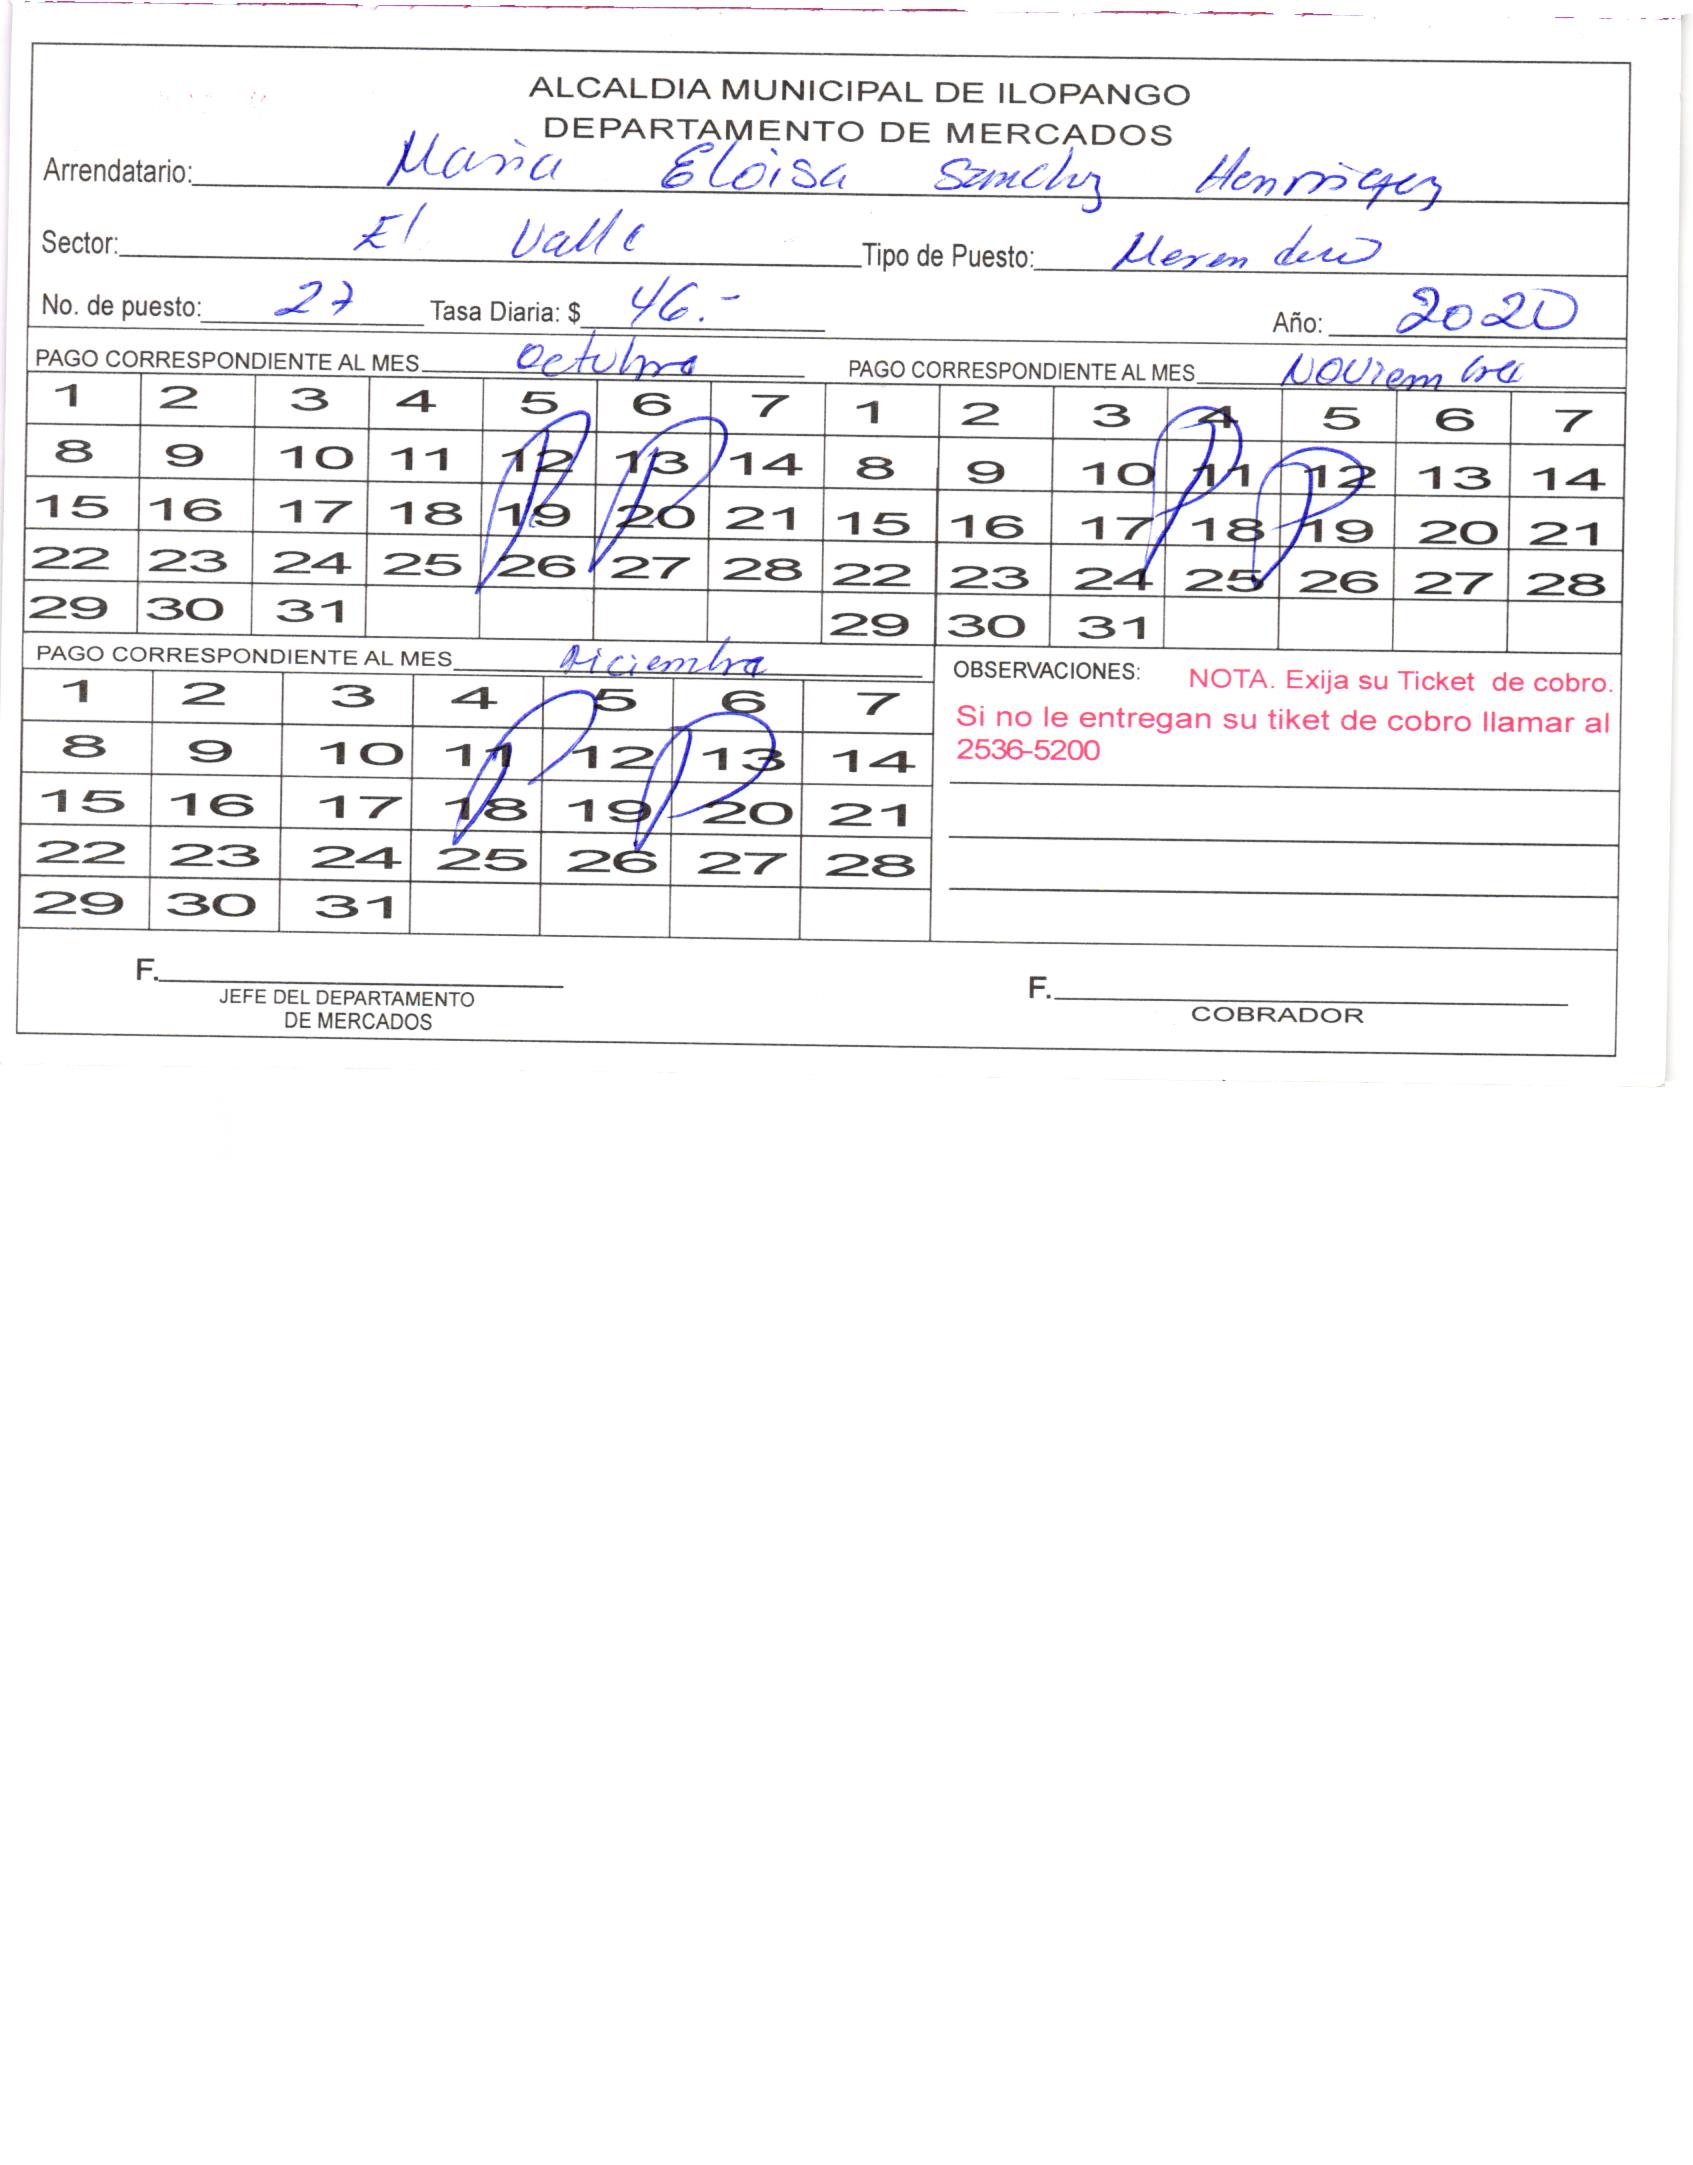 ALCALDIA MUNICIPAL DE ILOPANGO
DEPARTAMENTO DE MERCADOS
Arrendatario: Maria Eloisa Sanchez Henriquez
Sector: El Valle Tipo de Puesto: Merendero
No. de puesto: 27 Tasa Diaria: $ 46.- Año: 2020
PAGO CORRESPONDIENTE AL MES Octubre PAGO CORRESPONDIENTE AL MES Noviembre
1 2 3 4 5 6 7 1 2 3 4 5 6 7
8 9 10 11 12 13 14 8 9 10 11 12 13 14
15 16 17 18 19 20 21 15 16 17 18 19 20 21
22 23 24 25 26 27 28 22 23 24 25 26 27 28
29 30 31 29 30 31
PAGO CORRESPONDIENTE AL MES Diciembre OBSERVACIONES: NOTA. Exija su Ticket de cobro.
1 2 3 4 5 6 7 Si no le entregan su tiket de cobro llamar al
8 9 10 11 12 13 14 2536-5200
15 16 17 18 19 20 21
22 23 24 25 26 27 28
29 30 31
F. F.
JEFE DEL DEPARTAMENTO COBRADOR
DE MERCADOS